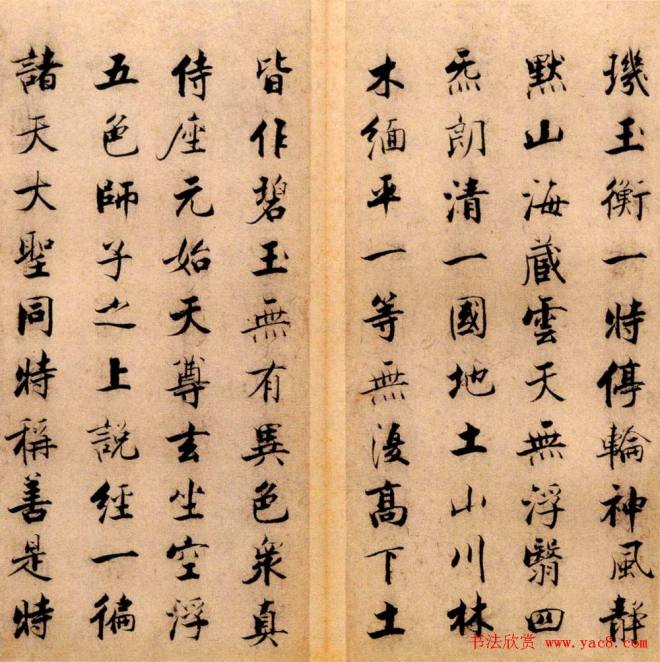 璣玉衡一時停輪神風靜
默山海藏雲天無浮翳四
炁朗清一國地土山川林
木緬平一等無復高下土
皆作碧玉無有異色衆真
侍座元始天尊玄坐空浮
五色師子之上說經一徧
諸天大聖同時稱善是時
书法欣赏 www.yac8.com